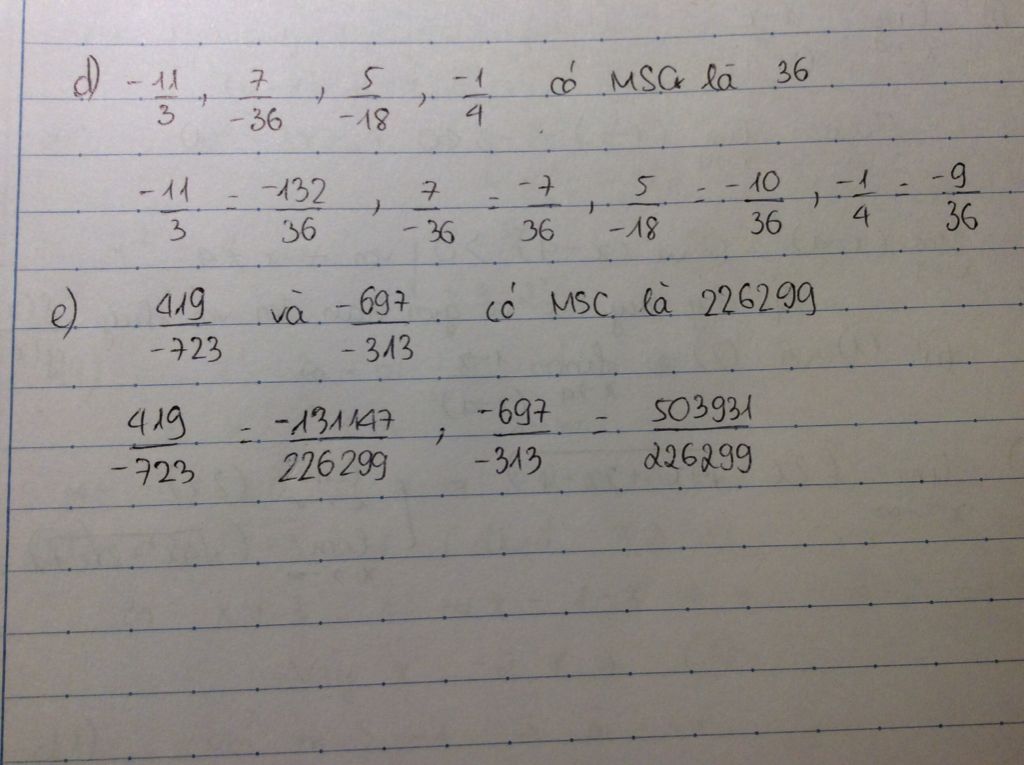 d) -11/3 , 7/-36 , 5/-18 , -1/4 có MSC là 36
-11/3 = -132/36 , 7/-36 = -7/36 , 5/-18 = -10/36 , -1/4 = -9/36
e) 419/-723 và -697/-313 có MSC là 226299
419/-723 = -131147/226299 , -697/-313 = 503931/226299